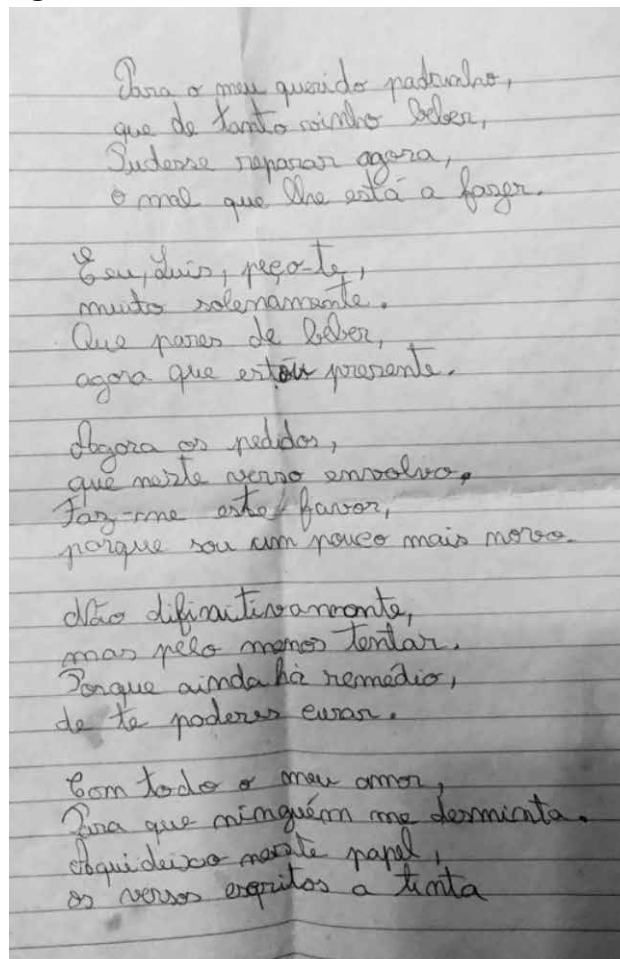 Para o meu querido padrinho,
que de tanto vinho beber,
Pudesse reparar agora,
o mal que lhe está a fazer.
E eu, Luis, peço-te,
muito solenamente.
Que pares de beber,
agora que estou presente.
Agora os pedidos,
que neste verso envolvo,
Faz-me este favor,
porque sou um pouco mais novo.
Não difinitivamente,
mas pelo menos tentar.
Porque ainda há remédio,
de te poderes curar.
Com todo o meu amor,
Para que ninguém me desminta.
Aqui deixo neste papel,
os versos esqritos a tinta